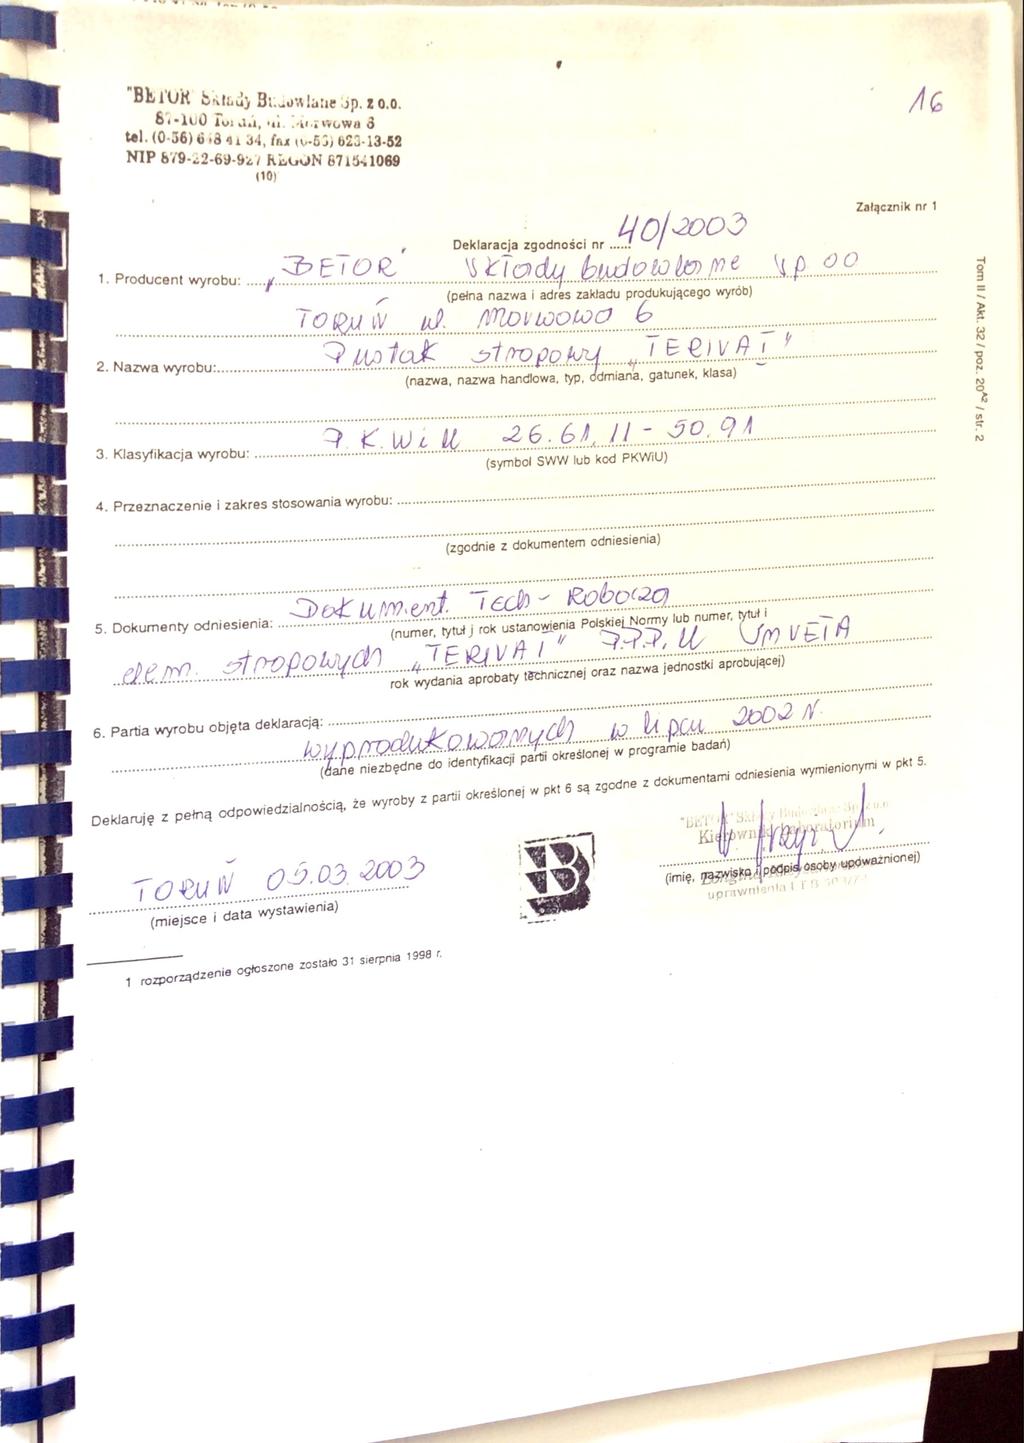 "BETOR" Składy Budowlane Sp. z o.o.
87-100 Toruń, ul. Morwowa 6
tel. (0-56) 648 41 34, fax (0-56) 623-13-52
NIP 879-22-69-927 REGON 871541069
(10)
16
Załącznik nr 1
Deklaracja zgodności nr ...... 40/2003
1. Producent wyrobu: „BETOR" Składy budowlane sp. oo
(pełna nazwa i adres zakładu produkującego wyrób)
TORUŃ ul. Morwowa 6
2. Nazwa wyrobu: Pustak stropowy „TERIVA I"
(nazwa, nazwa handlowa, typ, odmiana, gatunek, klasa)
3. Klasyfikacja wyrobu: P.K.WiU 26.61.11-50.91
(symbol SWW lub kod PKWiU)
4. Przeznaczenie i zakres stosowania wyrobu:
(zgodnie z dokumentem odniesienia)
5. Dokumenty odniesienia: Dokument. Tech - Robocza
(numer, tytuł j rok ustanowienia Polskiej Normy lub numer, tytuł i
elem. stropowych „TERIVA I" P.P.P.U
rok wydania aprobaty technicznej oraz nazwa jednostki aprobującej)
6. Partia wyrobu objęta deklaracją:
wyprodukowanych w lipcu 2002 r.
(dane niezbędne do identyfikacji partii określonej w programie badań)
Deklaruję z pełną odpowiedzialnością, że wyroby z partii określonej w pkt 6 są zgodne z dokumentami odniesienia wymienionymi w pkt 5.
Kierownik Laboratorium
TORUŃ 05.03.2003
(miejsce i data wystawienia)
B
(imię, nazwisko i podpis osoby upoważnionej)
1 rozporządzenie ogłoszone zostało 31 sierpnia 1998 r.
Tom II / Akt. 32 / poz. 20A2 / str. 2